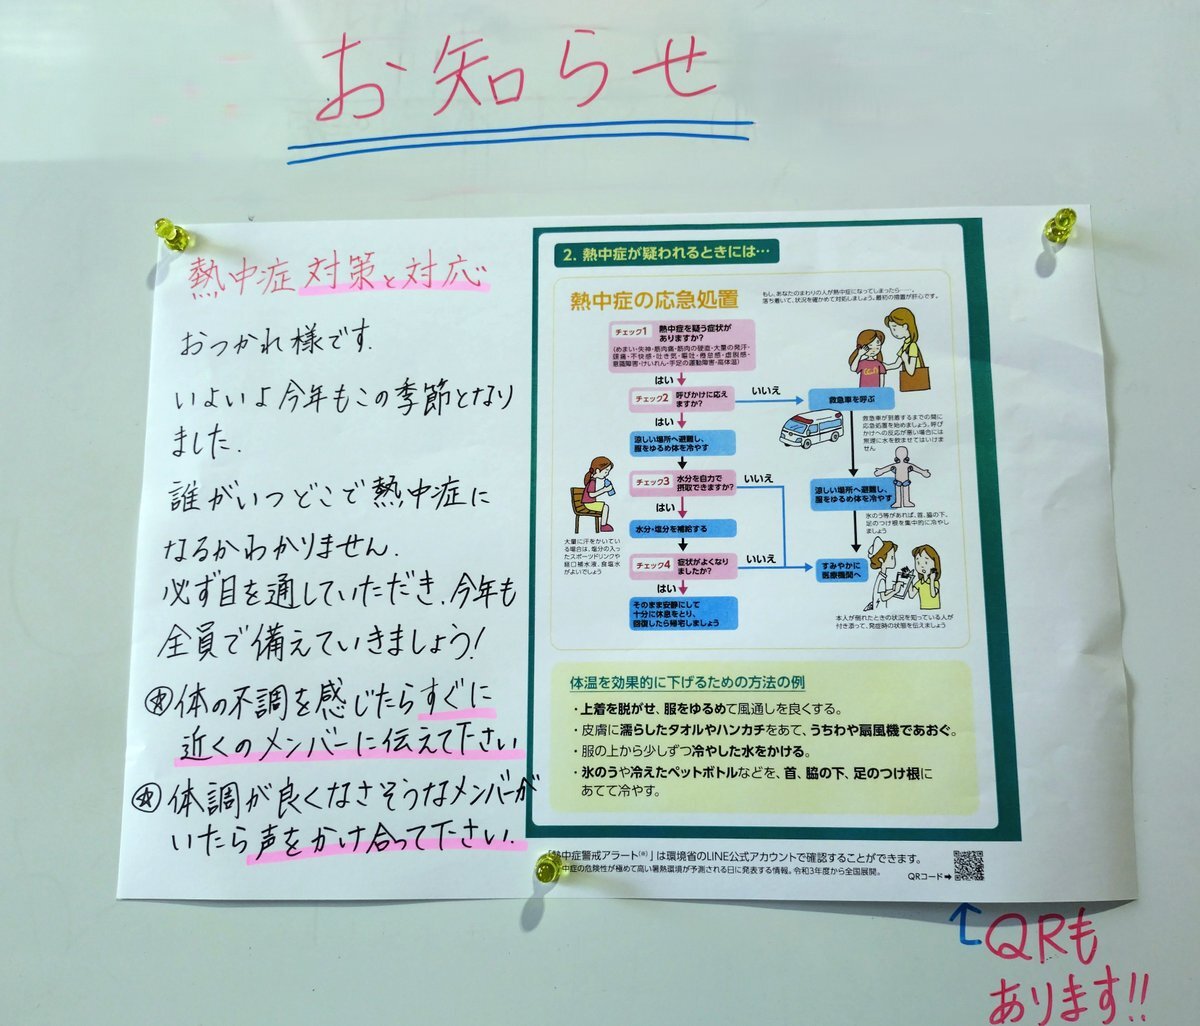 お知らせ
熱中症対策と対応
おつかれ様です.
いよいよ今年もこの季節となり
ました.
誰がいつどこで熱中症に
なるかわかりません.
必ず目を通していただき、今年も
全員で備えていきましょう!
☆体の不調を感じたらすぐに
近くのメンバーに伝えて下さい
☆体調が良くなさそうなメンバーが
いたら声をかけ合って下さい.
2. 熱中症が疑われるときには…
熱中症の応急処置
もし、あなたのまわりの人が熱中症になってしまったら……。
落ち着いて、状況を確かめて対処しましょう。最初の措置が肝心です。
チェック1 熱中症を疑う症状が
ありますか?
(めまい・失神・筋肉痛・筋肉の硬直・大量の発汗・
頭痛・不快感・吐き気・嘔吐・倦怠感・虚脱感・
意識障害・けいれん・手足の運動障害・高体温)
はい
チェック2 呼びかけに応え
ますか?
いいえ
救急車を呼ぶ
はい
救急車が到着するまでの間に
応急処置を始めましょう。呼び
かけへの反応が悪い場合には
無理に水を飲ませてはいけま
せん
涼しい場所へ避難し、
服をゆるめ体を冷やす
チェック3 水分を自力で
摂取できますか?
いいえ
涼しい場所へ避難し、
服をゆるめ体を冷やす
はい
氷のう等があれば、首、脇の下、
足のつけ根を集中的に冷やし
ましょう
水分・塩分を補給する
大量に汗をかいてい
る場合は、塩分の入っ
たスポーツドリンクや
経口補水液、食塩水
がよいでしょう
チェック4 症状がよくなり
ましたか?
いいえ
すみやかに
医療機関へ
はい
そのまま安静にして
十分に休息をとり、
回復したら帰宅しましょう
本人が倒れたときの状況を知っている人が
付き添って、発症時の状態を伝えましょう
体温を効果的に下げるための方法の例
・上着を脱がせ、服をゆるめて風通しを良くする。
・皮膚に濡らしたタオルやハンカチをあて、うちわや扇風機であおぐ。
・服の上から少しずつ冷やした水をかける。
・氷のうや冷えたペットボトルなどを、首、脇の下、足のつけ根に
あてて冷やす。
「熱中症警戒アラート(※)」は環境省のLINE公式アカウントで確認することができます。
中症の危険性が極めて高い暑熱環境が予測される日に発表する情報。令和3年度から全国展開。
QRコード➡
QRも
あります!!